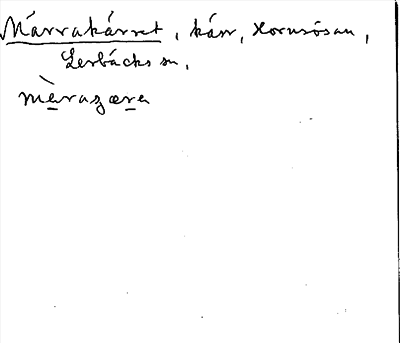 Márrakárret, kárr, Kornsösan,
Lerbäcks sn,
màrazæra